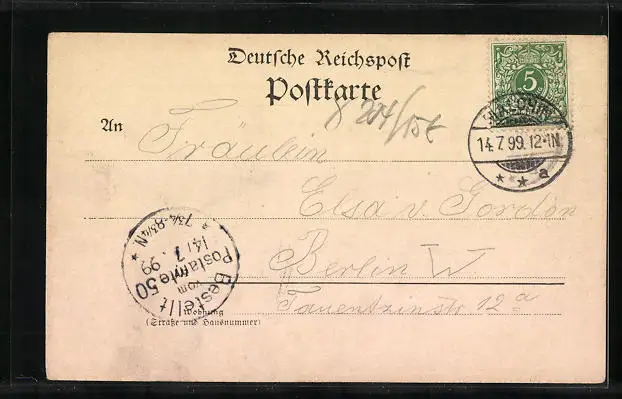 Deutsche Reichspost
Postkarte
5
14.7.99.12-1N.
* * a
An
Fräulein
Elsa v. Gordon
Berlin W.
Tauentzinstr 12a
Wohnung
(Straße und Hausnummer)
Bestellt
vom
Postamte 50
14/7. 99
* 7¾-8¾N *